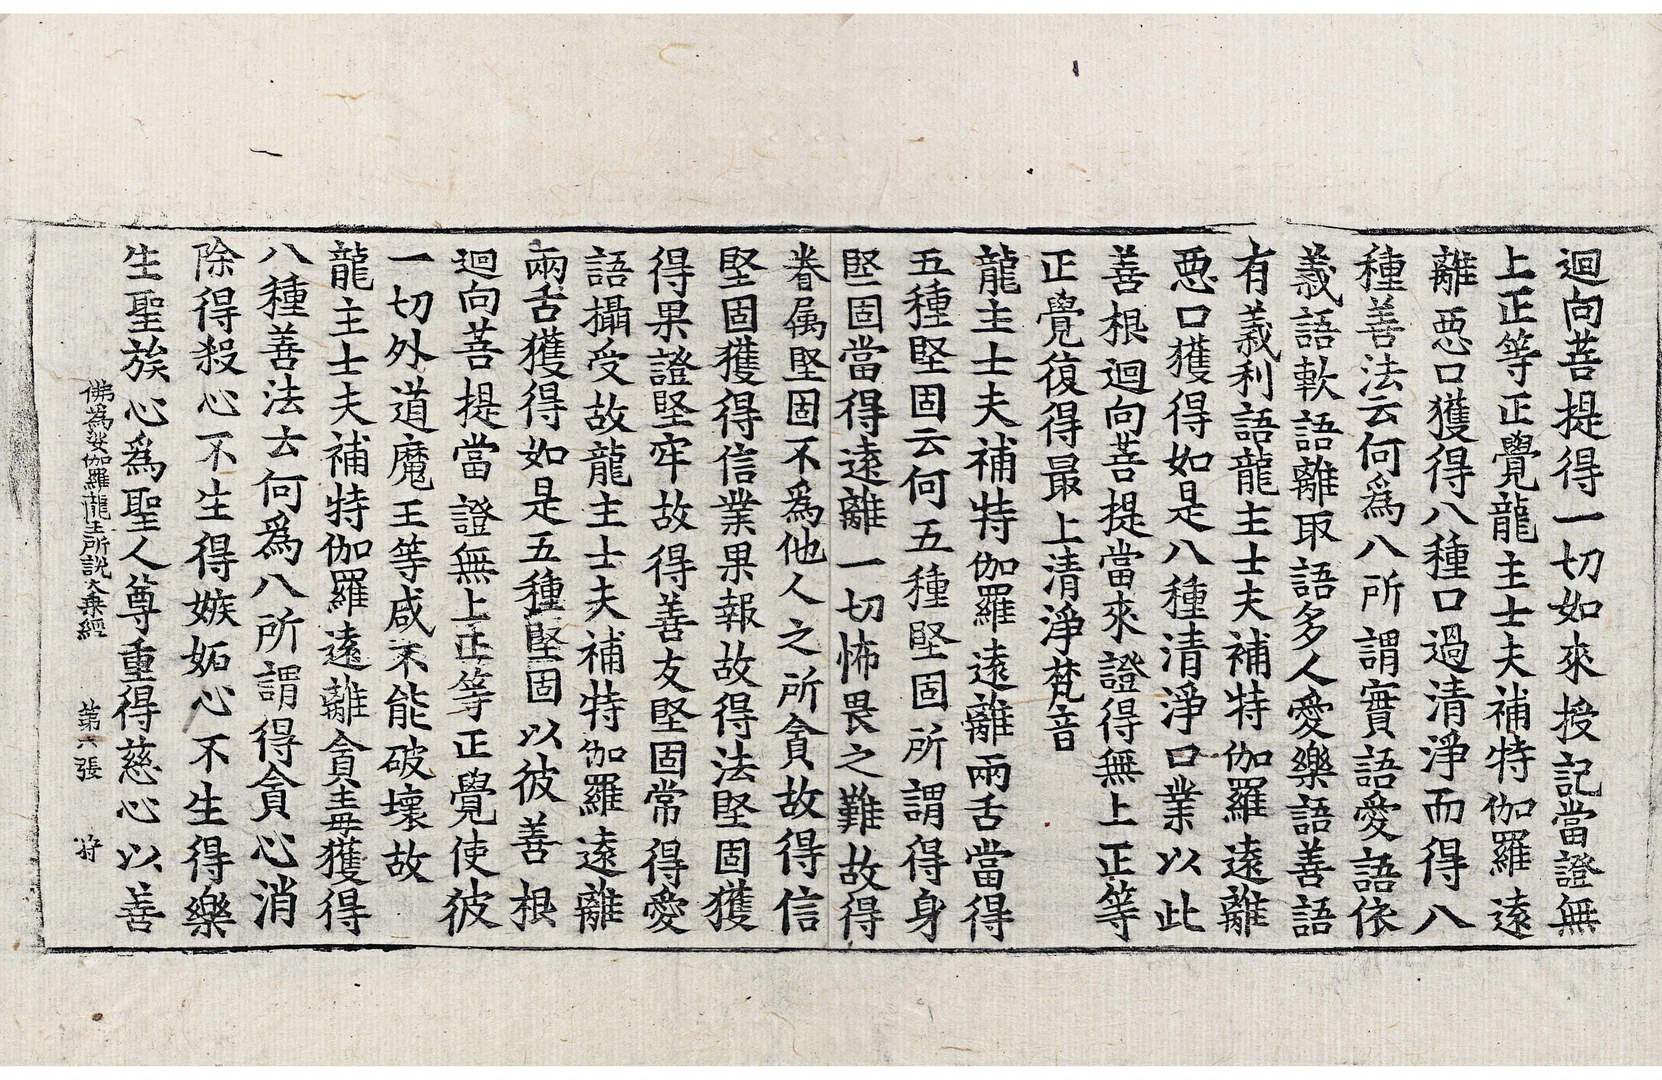 迴向菩提得一切如來授記當證無
上正等正覺龍主士夫補特伽羅遠
離惡口獲得八種口過清淨而得八
種善法云何爲八所謂實語愛語依
義語軟語離取語多人愛樂語善語
有義利語龍主士夫補特伽羅遠離
惡口獲得如是八種清淨口業以此
善根迴向菩提當來證得無上正等
正覺復得最上清淨梵音
龍主士夫補特伽羅遠離兩舌當得
五種堅固云何五種堅固所謂得身
堅固當得遠離一切怖畏之難故得
眷属堅固不爲他人之所貪故得信
堅固獲得信業果報故得法堅固獲
得果證堅牢故得善友堅固常得愛
語攝受故龍主士夫補特伽羅遠離
兩舌獲得如是五種堅固以彼善根
迴向菩提當證無上正等正覺使彼
一切外道魔王等咸不能破壞故
龍主士夫補特伽羅遠離貪毒獲得
八種善法云何爲八所謂得貪心消
除得殺心不生得嫉妬心不生得樂
生聖族心爲聖人尊重得慈心以善
佛爲娑伽羅龍王所說大乘經 第六張 符